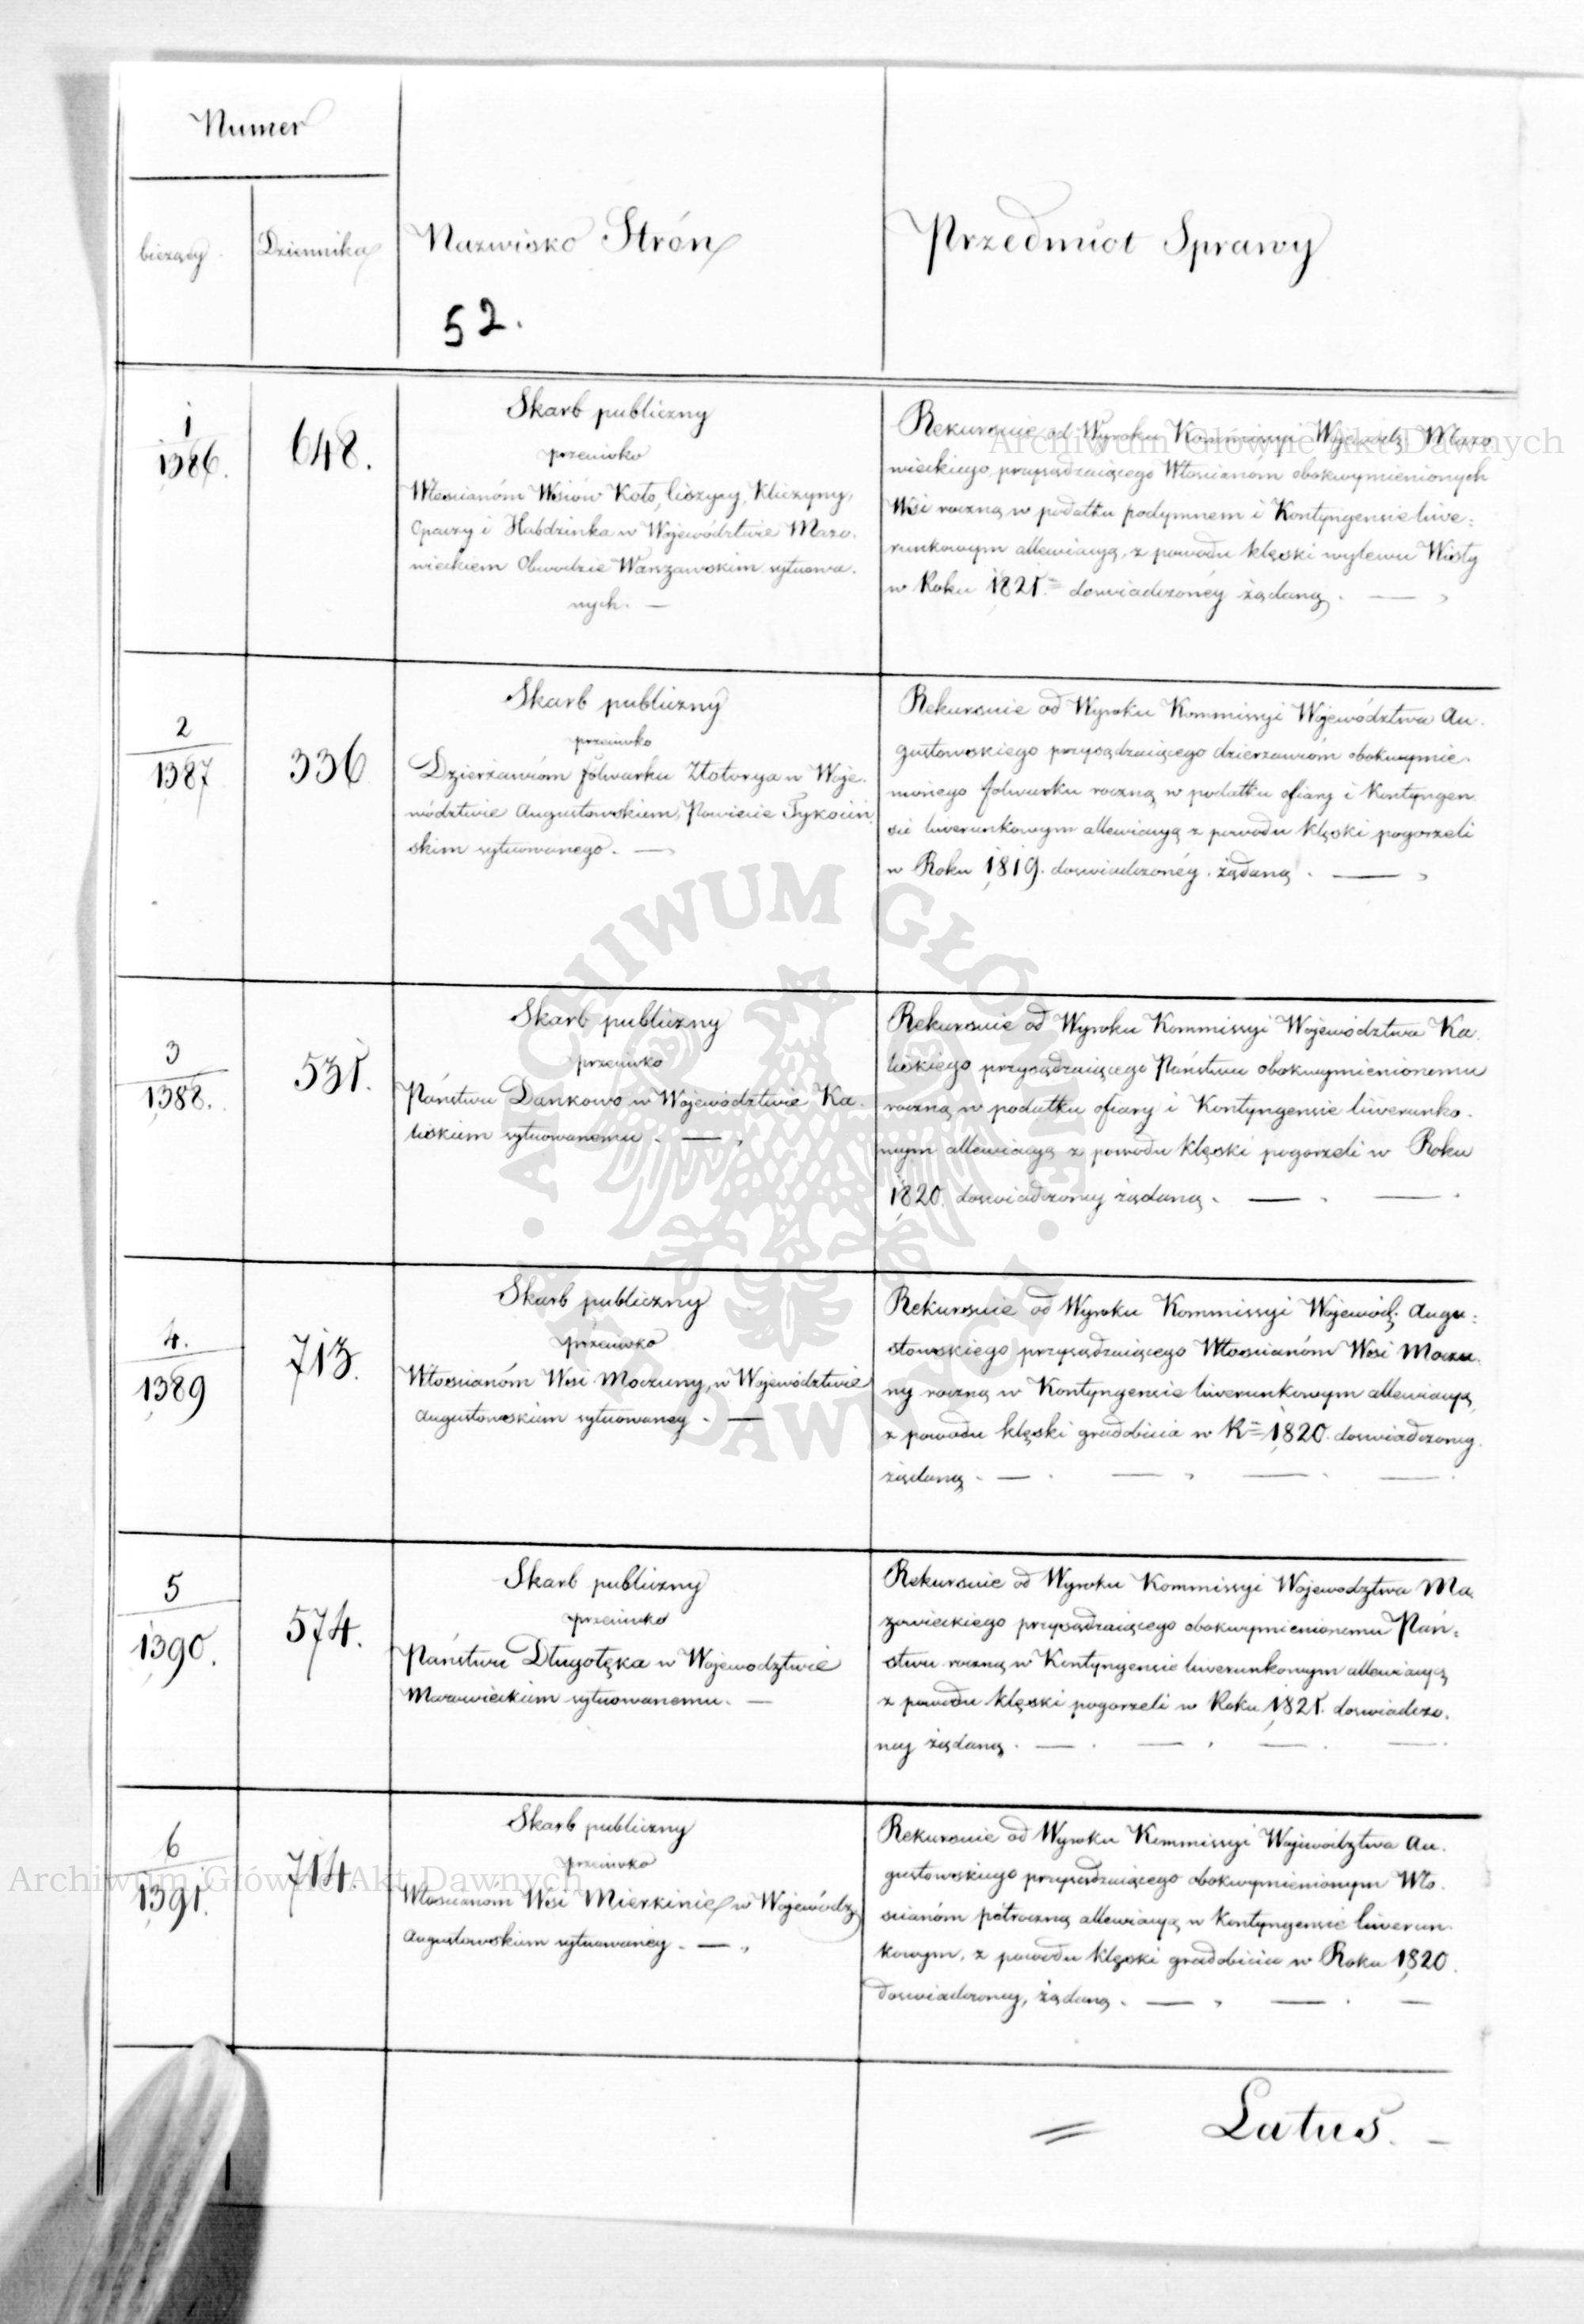 Numer
bieżący Dziennika
Nazwisko Strón
Przedmiot Sprawy
52.
1
1386.
648.
Skarb publiczny
przeciwko
Włościanóm Wsiów Koło, Ciszycy, Kliczyny,
Opaczy i Habdzinka w Województwie Mazo-
wieckiem Obwodzie Warszawskim sytuowa-
nych. —
Rekursuie od Wyroku Kommissyi Wojewodz: Mazo
wieckiego przysądzaiącego Włościanóm obokwymienionych
Wsi roczną w podatku podymnem i Kontyngensie liwe:
runkowym allewiacyą, z powodu klęski wylewu Wisły
w Roku 1821. doswiadczonéy żądaną. —
2
1387
336
Skarb publiczny
przeciwko
Dzierżawcóm folwarku Złotorya w Woje-
wództwie Augustowskiem, Powiecie Tykociń
skim sytuowanego. —
Rekursuie od Wyroku Kommissyi Województwa Au-
gustowskiego przysądzaiącego dzierzawcóm obokwymie-
nionego folwarku roczną w podatku ofiary i Kontyngen
sie liwerunkowym allewiacyą z powodu klęski pogorzeli
w Roku 1819. doswiadczonéy żądaną. —
3
1388.
531.
Skarb publiczny
przeciwko
Państwu Dankowo w Województwie Ka-
liskiem sytuowanemu. —
Rekursuie od Wyroku Kommissyi Województwa Ka-
liskiego przysądzaiącego Państwu obokwymienionemu
roczną w podatku ofiary i Kontyngensie liwerunko-
wym allewiacyą z powodu klęski pogorzeli w Roku
1820. doswiadczoney żądaną. — —
4.
1389
713.
Skarb publiczny
przeciwko
Włościanóm Wsi Moczuny, w Województwie
Augustowskiem sytuowaney. —
Rekursuie od Wyroku Kommissyi Wojewódz: Augu:
stowskiego przysądzaiącego Włościanóm Wsi Moczu
ny roczną w Kontyngensie liwerunkowym allewiacyą,
z powodu klęski gradobicia w R= 1820. doswiadczoney
żądaną. — — — —
5
1390.
574.
Skarb publiczny
przeciwko
Państwu Długołęka w Wojewodztwie
Mazowieckiem sytuowanemu. —
Rekursuie od Wyroku Kommissyi Wojewodztwa Ma-
zowieckiego przysądzaiącego obokwymienionemu Pań:
stwu roczną w Kontyngensie liwerunkowym allewiacyą
z powodu klęski pogorzeli w Roku 1821. doswiadczo-
ney żądaną. — — — —
6
1391.
714.
Skarb publiczny
przeciwko
Włościanom Wsi Mierkinie w Wojewódz
Augustowskiem sytuowaney. —
Rekursuie od Wyroku Kommissyi Województwa Au-
gustowskiego przysądzaiącego obokwymienionym Wło-
scianóm półroczną allewiacyą w Kontyngensie liwerun-
kowym, z powodu klęski gradobicia w Roku 1820.
doswiadczoney, żądaną. — — —
= Latus. —
Archiwum Główne Akt Dawnych
Archiwum Główne Akt Dawnych
ARCHIWUM GŁÓWNE AKT DAWNYCH